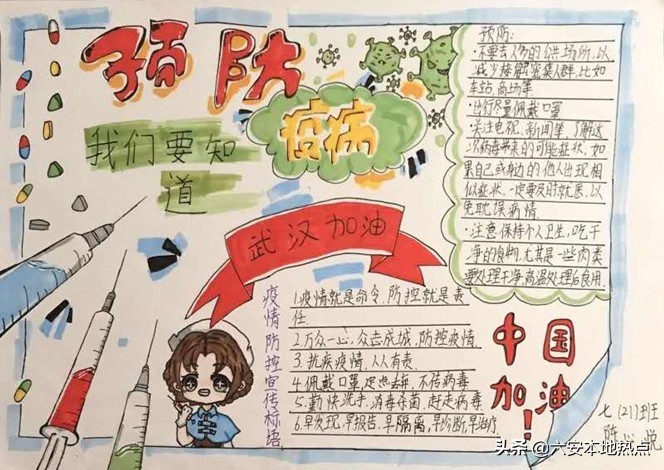 预防
疫病
我们要知
道
预防:
·不要去人多的公共场所,以
减少接触密集人群,比如
车站,商场等
·出行尽量佩戴口罩
·关注电视、新闻等,了解这
次病毒带来的可能症状,如
果自己或身边的他人出现相
似症状,一定要及时就医,以
免耽误病情
·注意保持个人卫生,吃干
净的食物,尤其是一些肉类
要处理干净,高温处理后食用.
武汉加油
疫情防控宣传标语
1.疫情就是命令,防控就是责
任.
2.万众一心,众志成城,防控疫情.
3.抗疾疫情,人人有责.
4.佩戴口罩,定点去年,不传病毒
5.勤快洗手,消毒杀菌,赶走病毒
6.早发现,早报告,早隔离,早诊断,早治疗.
中国
加油!
七(21)班
陈心悦
头条@六安本地热点